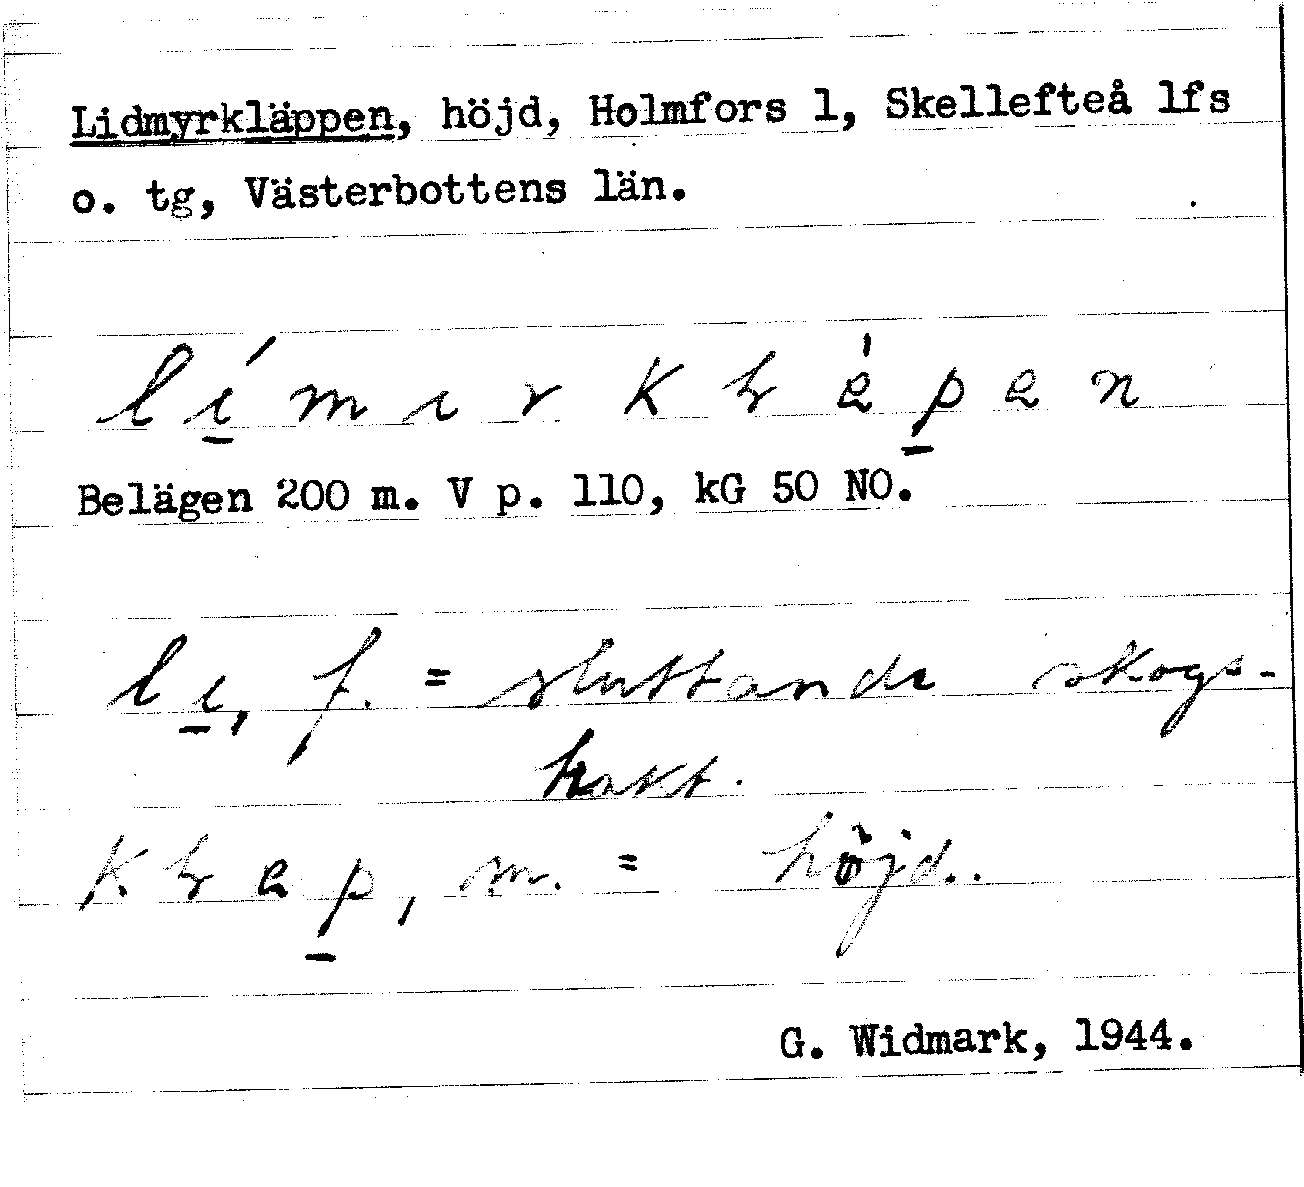 Lidmyrkläppen, höjd, Holmfors 1, Skellefteå lfs
o. tg, Västerbottens län.
Belägen 200 m. V p. 110, kG 50 NO.
lɩ, f. = sluttande skogs-
trakt.
m. = höjd.
G. Widmark, 1944.